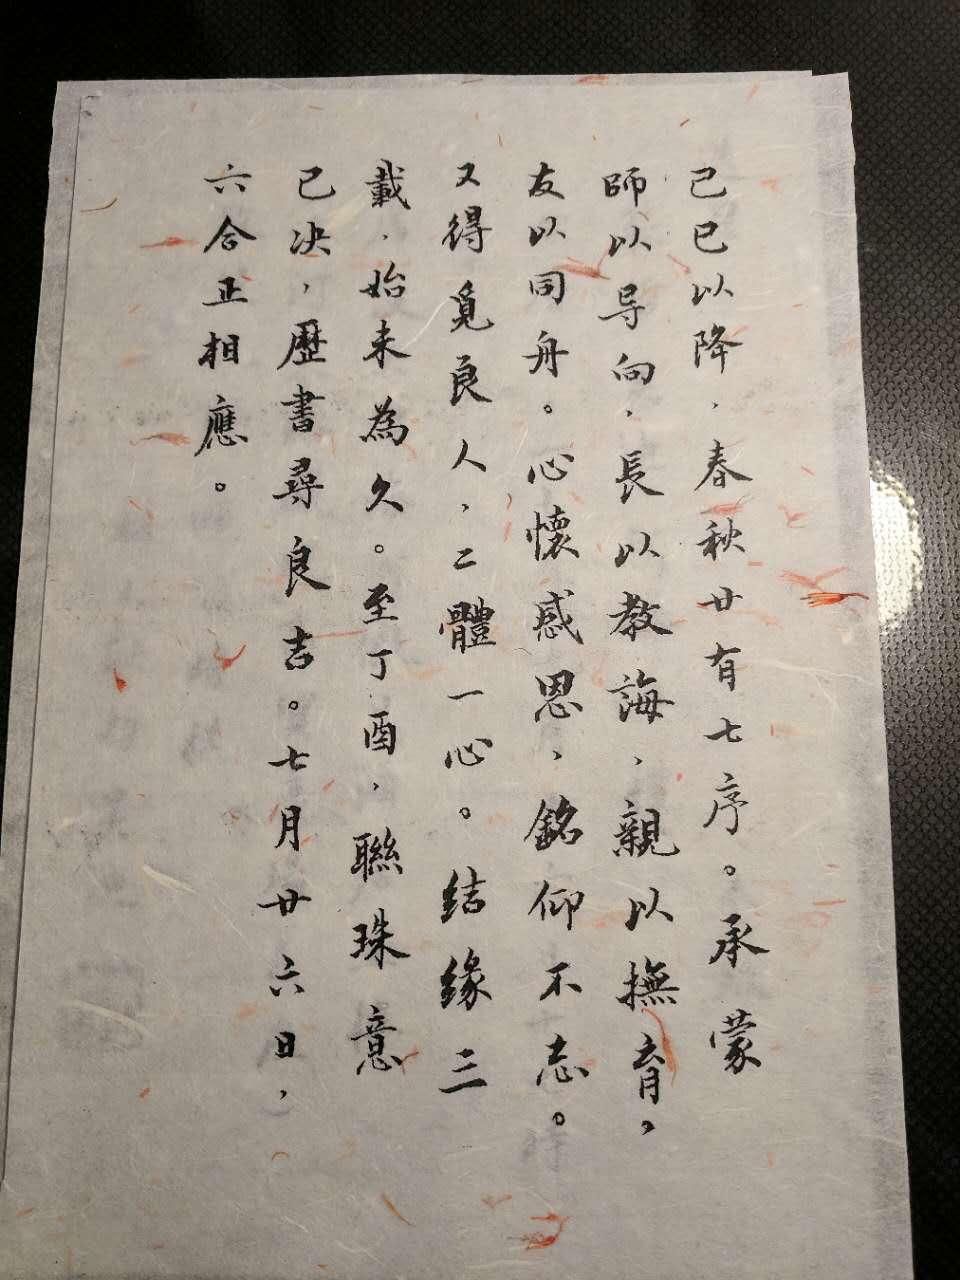 己巳以降，春秋廿有七序。承蒙
師以导向，長以教誨，親以撫育，
友以同舟。心懷感恩，銘仰不志。
又得覓良人，二體一心。结缘三
載，始未為久。至丁酉，聯珠意
已决，歷書尋良吉。七月廿六日，
六合正相應。